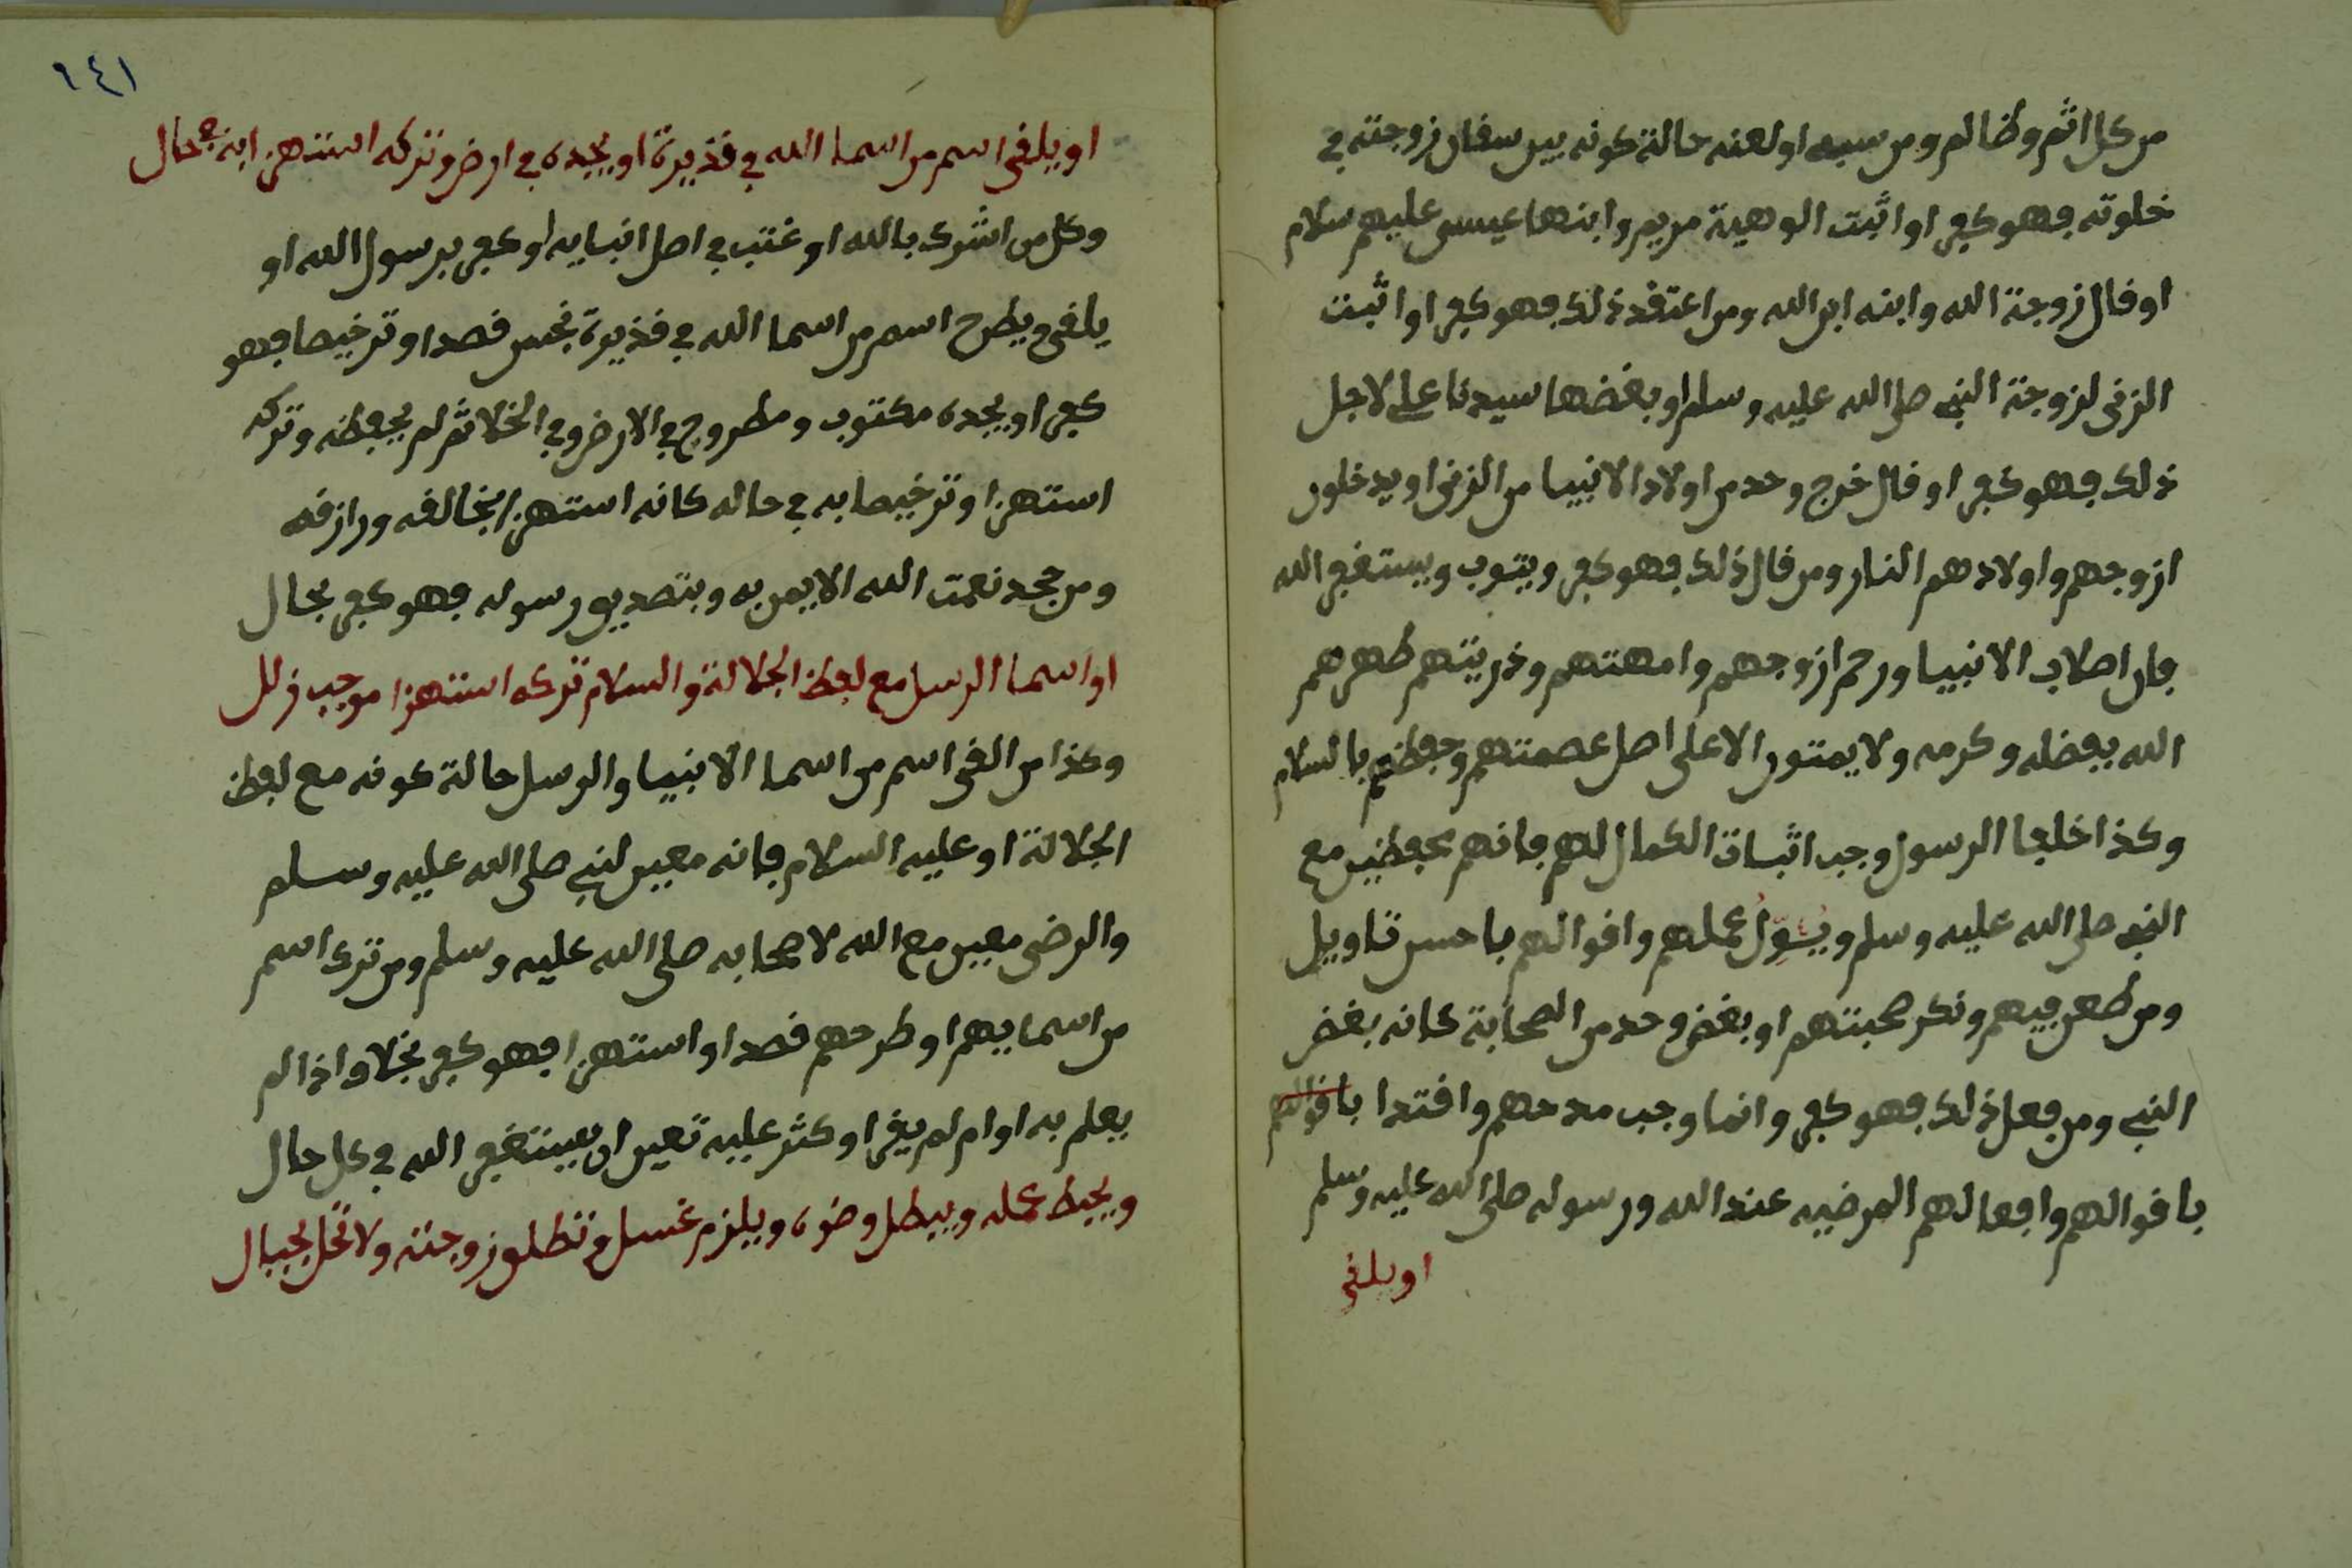 من كل اثم وظالم ومن سبه او لعنه حالة كونه بين سفان زوجته في
خلوته فهو كفر او اثبت الوهية مريم وابنها عيسى عليهم سلام
او قال زوجة الله وابنه ابن الله ومن اعتقد ذلك فهو كفر او اثبت
الزنى لزوجة النبي صلى الله عليه وسلم او بغضها سيدنا على لاجل
ذلك فهو كفر او قال خرج وحد من اولاد الانبيا من الزنى او يدخلون
ازوجهم واولادهم النار ومن قال ذلك فهو كفر ويتوب ويستغفر الله
فان اصلاب الانبيا ورحم ازوجهم وامهتهم وذريتهم طهرهم
الله بفضله وكرمه ولا يمتون الا على اصل عصمتهم وحفظهم بالسلام
وكذا خلفا الرسول وجب اثبات الكمال لهم فانهم محفظين مع
النبي صلى الله عليه وسلم ويئول عملهم واقوالهم باحسن تاويل
ومن طعن فيهم ونكر صحبتهم او بغض وحد من الصحابة كانه بغض
النبي ومن فعل ذلك فهو كفر وانما وجب مدحهم واقتدا باقوالهم
باقوالهم وافعالهم المرضيه عند الله ورسوله صلى الله عليه وسلم
او يلقى
١٤١
او يلقى اسم من اسما الله في قذيرة او يجده في ارض وتركه استهزا به محال
وكل من اشرك بالله او غتب في اصل انبيايه او كفر برسول الله او
يلقى ويطرح اسم من اسما الله في قذيرة نجس قصدا وترخيصا فهو
كفر او يجده مكتوب ومطروح في الارض وفي الخلا ثم لم يحفظه وتركه
استهزا وترخيصا به في حاله كانه استهزا بخالقه ورازقه
ومن جحد نعمت الله الا يمن به وبتصديق رسوله فهو كفر محال
او اسما الرسل مع لفظ الجلالة والسلام تركه استهزا موجب زلل
وكذا من القى اسم من اسما الانبيا والرسل حالة كونه مع لفظ
الجلالة او عليه السلام فانه معين لنبي صلى الله عليه وسلم
والرضى معين مع الله لاصحابه صلى الله عليه وسلم ومن ترك اسم
من اسمايهم او طرحهم قصدا واستهزا فهو كفر بخلاف اذا لم
يعلم به او ام لم يقرا وكثر عليه تعين ان يستغفر الله في كل حال
ويحبط عمله ويبطل وضوه ويلزم غسل وتطلق زوجته ولا تحل بحبال